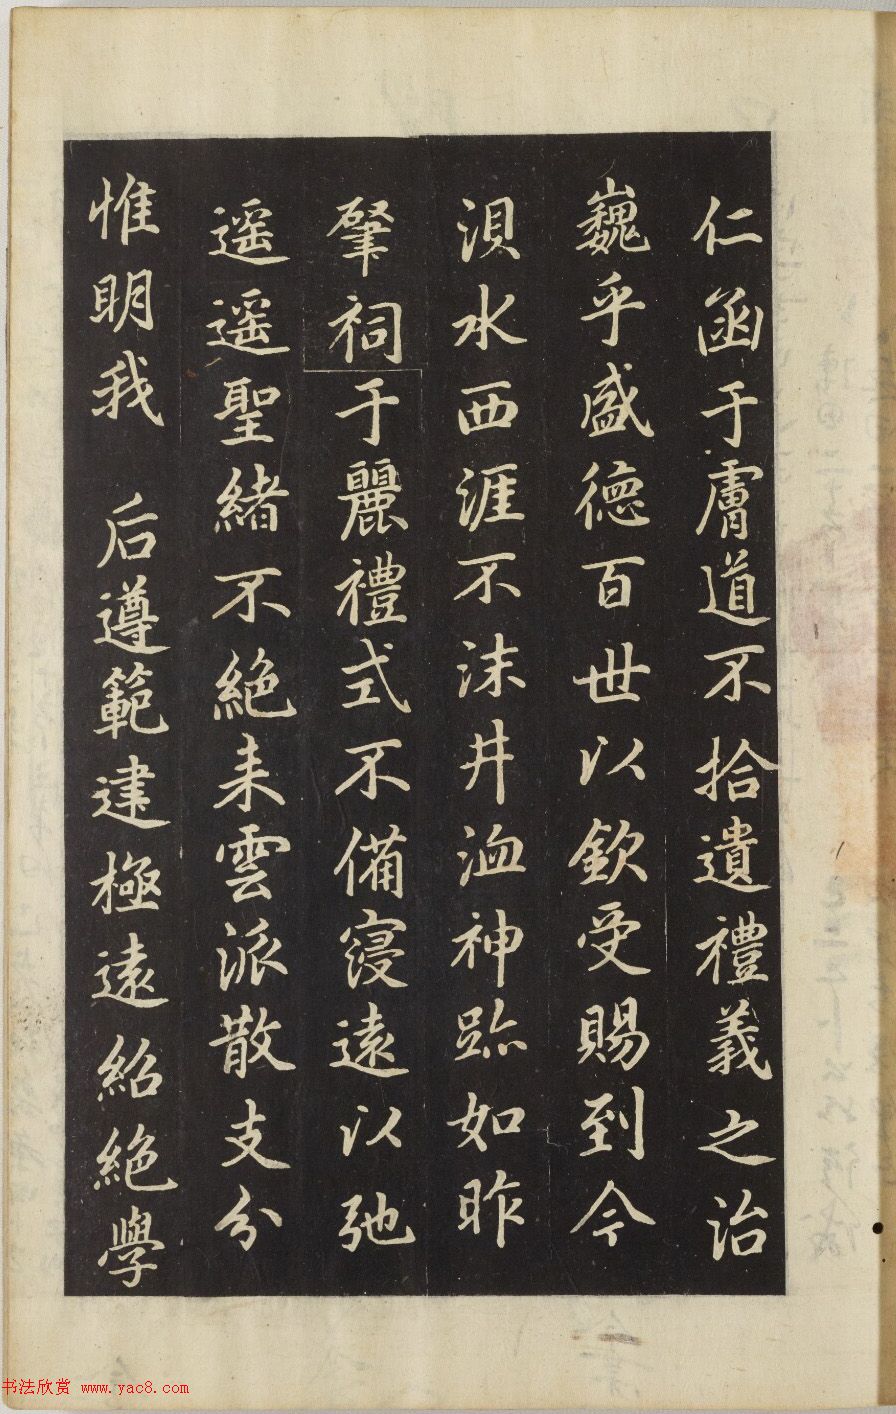 仁函于膚道不拾遺禮義之治
巍乎盛德百世以欽受賜到今
浿水西涯不沫井洫神跡如昨
肇祠于麗禮式不備寖遠以弛
遥遥聖緒不絶耒雲派散支分
惟明我 后遵範建極遠紹絶學
书法欣赏 www.yac8.com